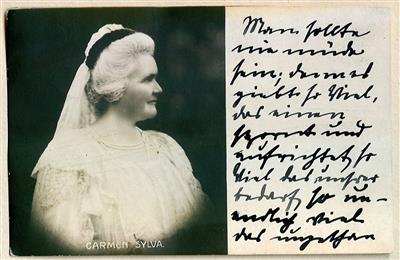 CARMEN SYLVA.
Man sollte
nie müde
sein, denn es
giebt so Viel,
das einen
spornt und
aufrichtet so
Viel das unsrer
bedarf so un-
endlich viel
das ungethan